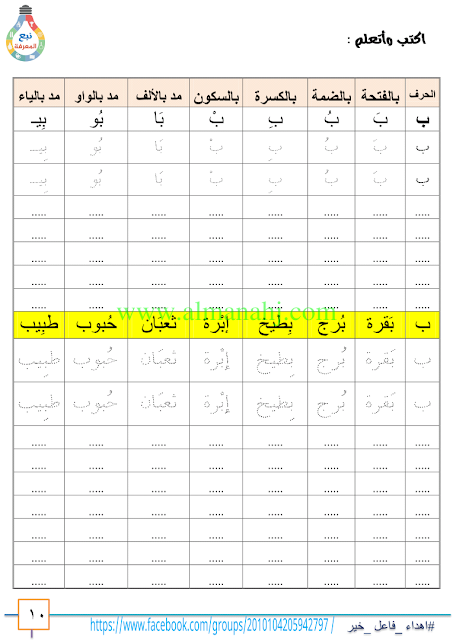 نبع
المعرفة
اكتب وأتعلم :
الحرف بالفتحة بالضمة بالكسرة بالسكون مد بالألف مد بالواو مد بالياء
ب بَ بُ بِ بْ بَا بُو بِيـ
ب بَ بُ بِ بْ بَا بُو بِيـ
ب بَ بُ بِ بْ بَا بُو بِيـ
..... ..... ..... ..... ..... ..... ..... .....
..... ..... ..... ..... ..... ..... ..... .....
..... ..... ..... ..... ..... ..... ..... .....
..... ..... ..... ..... ..... ..... ..... .....
..... ..... ..... ..... ..... ..... ..... .....
www.almanahj.com
ب بَقرة بُرج بِطيخ إبْرة ثعبَان حُبوب طبِيب
ب بَقرة بُرج بِطيخ إبْرة ثعبَان حُبوب طبِيب
ب بَقرة بُرج بِطيخ إبْرة ثعبَان حُبوب طبِيب
..... ..... ..... ..... ..... ..... ..... .....
..... ..... ..... ..... ..... ..... ..... .....
..... ..... ..... ..... ..... ..... ..... .....
..... ..... ..... ..... ..... ..... ..... .....
..... ..... ..... ..... ..... ..... ..... .....
..... ..... ..... ..... ..... ..... ..... .....
..... ..... ..... ..... ..... ..... ..... .....
#اهداء_فاعل_خير https://www.facebook.com/groups/2010104205942797/ ١٠